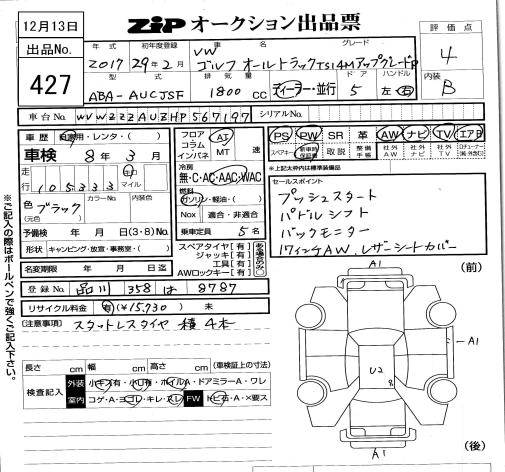 12月13日
ZIP オークション出品票
出品No.
427
評価点
4
内装
B
年式 初年度登録 車名 グレード
2017 29年2月 VW
ゴルフ オールトラックTSI4Mアップグレードp
型式 排気量 ドア ハンドル
ABA-AUCJSF 1800 CC ディーラー・並行 5 左 右
車台No. WVWZZZAUZHP567197 シリアルNo.
車歴 自家用・レンタ・( )
車検 8年 3月
走行 105333 km マイル
色 ブラック (元色) カラーNo. 内装色
予備検 年 月 日(3・8)No.
形状 キャンピング・放宣・事務室・( )
名変期限 年 月 日迄
フロア コラム インパネ AT MT 速
冷房
無・C・AC・AAC・WAC
燃料
ガソリン・軽油・( )
Nox 適合・非適合
乗車定員 5名
スペアタイヤ[有]
ジャッキ[有]
工具[有]
AWロックキー[有]
PS PW SR 革 AW ナビ TV エアB
スペアキー 新車時保証書 取説 整備手帳 社外AW 社外ナビ 社外TV
*上記太枠内は標準装備品
セールスポイント
プッシュスタート
パドルシフト
バックモニター
17インチAW、レザーシートカバー
登録No. 品川 358 は 8787
リサイクル料金 有(¥15,730) 未
(注意事項) スタットレスタイヤ 積 4本
長さ cm 幅 cm 高さ cm (車検証上の寸法)
検査記入 外装 小キズ有・小凹有・ホイルA・ドアミラーA・ワレ
室内 コゲ・A・ヨゴレ・キレ・スレ FW トビ石・A・×要ス
※ご記入の際はボールペンで強くご記入下さい。
A1
(前)
A1
U2
A1
(後)